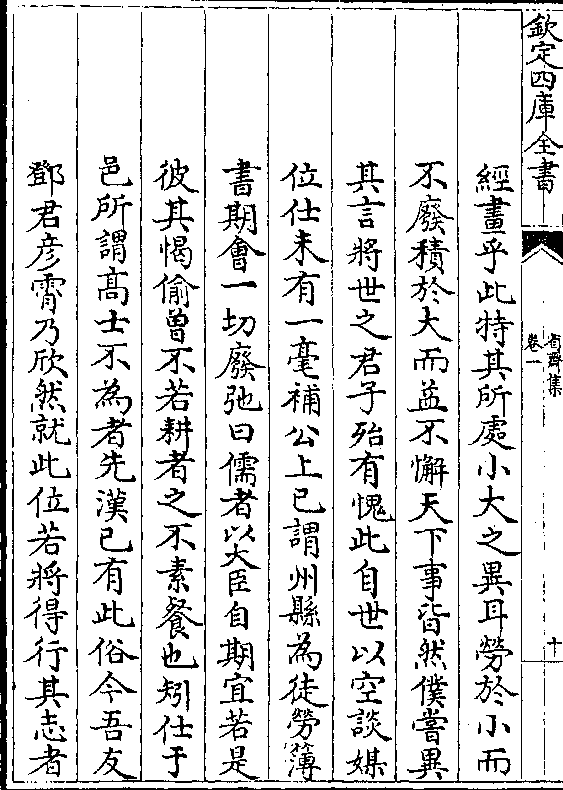 欽定四庫全書
省齋集
卷一
十
經畫乎此特其所處小大之異耳勞於小而
不廢積於大而益不懈天下事皆然僕嘗異
其言將世之君子殆有愧此自世以空談媒
位仕未有一毫補公上已謂州縣為徒勞簿
書期會一切廢弛曰儒者以大臣自期宜若是
彼其愒偷曾不若耕者之不素餐也矧仕于
邑所謂髙士不為者先漢已有此俗今吾友
鄧君彦霄乃欣然就此位若將得行其志者